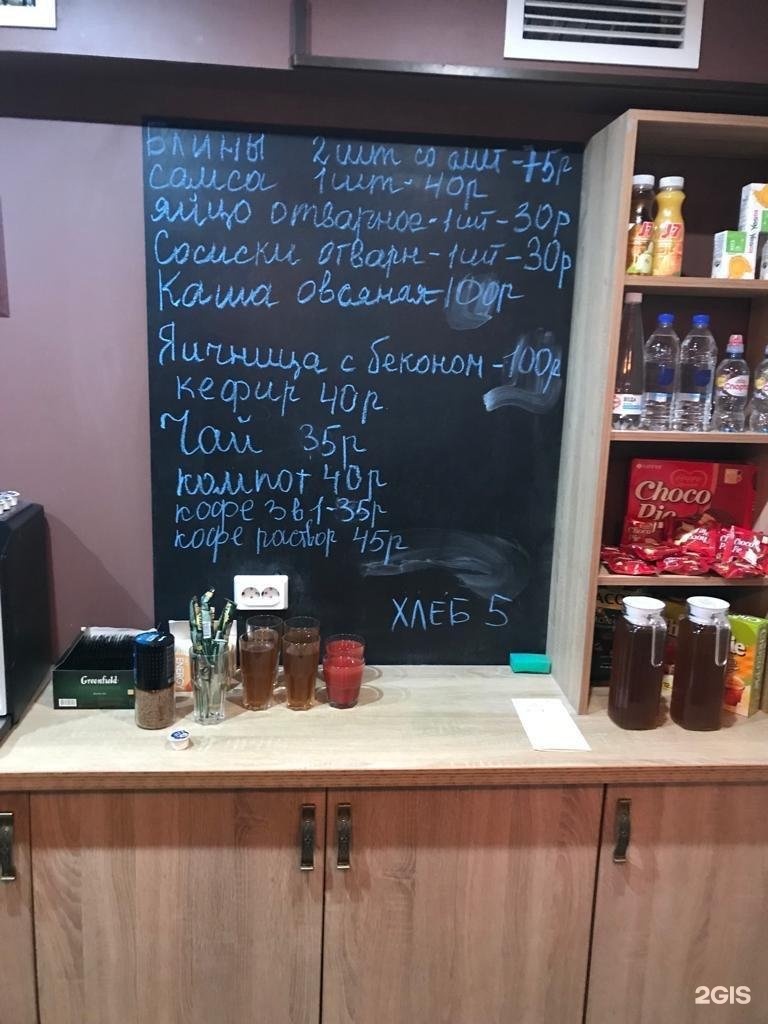 БЛИНЫ 2 шт со смт - 75р
самса 1 шт - 40р
яйцо отварное - 1 шт - 30р
Сосиски отварн - 1 шт - 30р
Каша овсяная 100р
Яичница с беконом - 100р
кефир 40р
Чай 35р
компот 40р
кофе 3 в 1 - 35р
кофе раствор 45р
ХЛЕБ 5
J7
Choco
Pie
Greenfield
2GIS